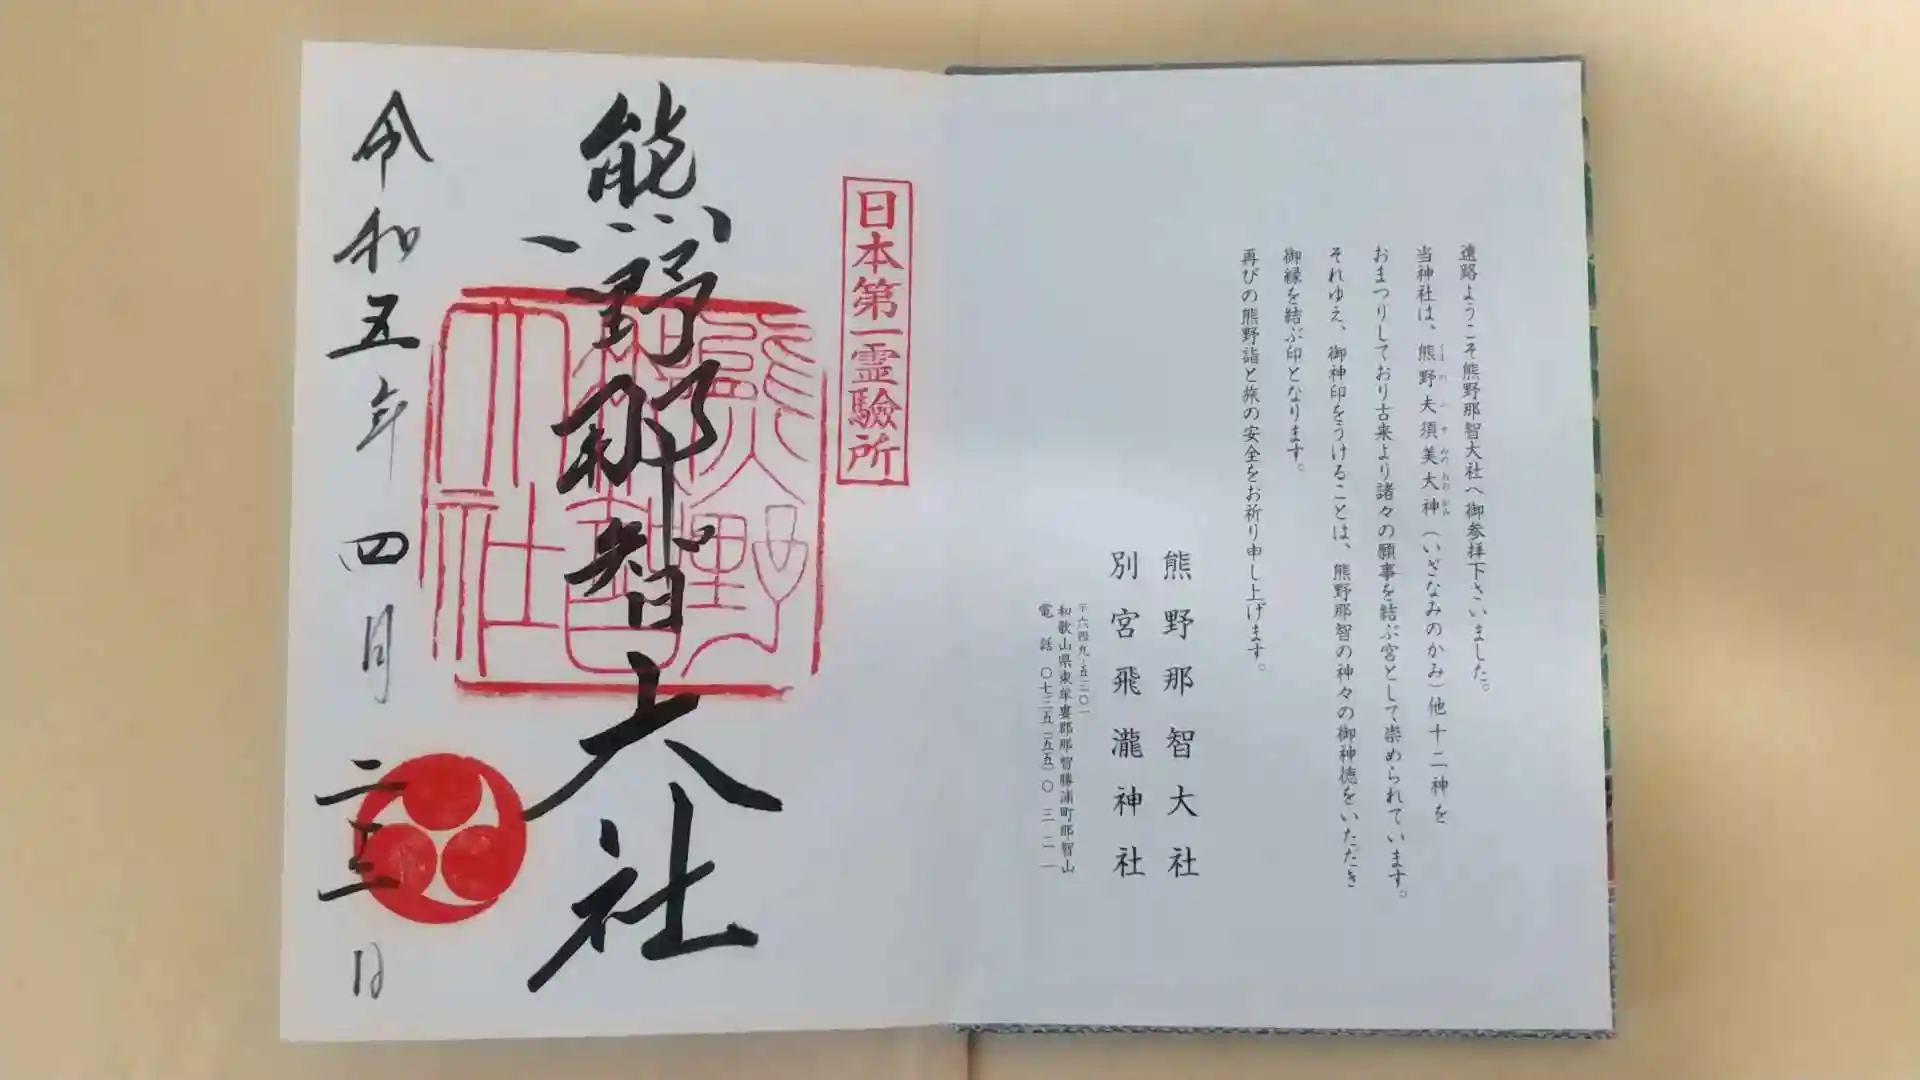 遠路ようこそ熊野那智大社へ御参拝下さいました。
当神社は、熊野夫須美大神（いざなみのかみ）他十二神を
おまつりしており古来より諸々の願事を結ぶ宮として崇められています。
それゆえ、御神印をうけることは、熊野那智の神々の御神徳をいただき
御縁を結ぶ印となります。
再びの熊野詣と旅の安全をお祈り申し上げます。
熊野那智大社
別宮飛瀧神社
〒六四九-五三〇一
和歌山県東牟婁郡那智勝浦町那智山
電話〇七三五(五五)〇三二一
日本第一霊験所
熊野那智大社
熊野那智大社
令和五年四月二十三日